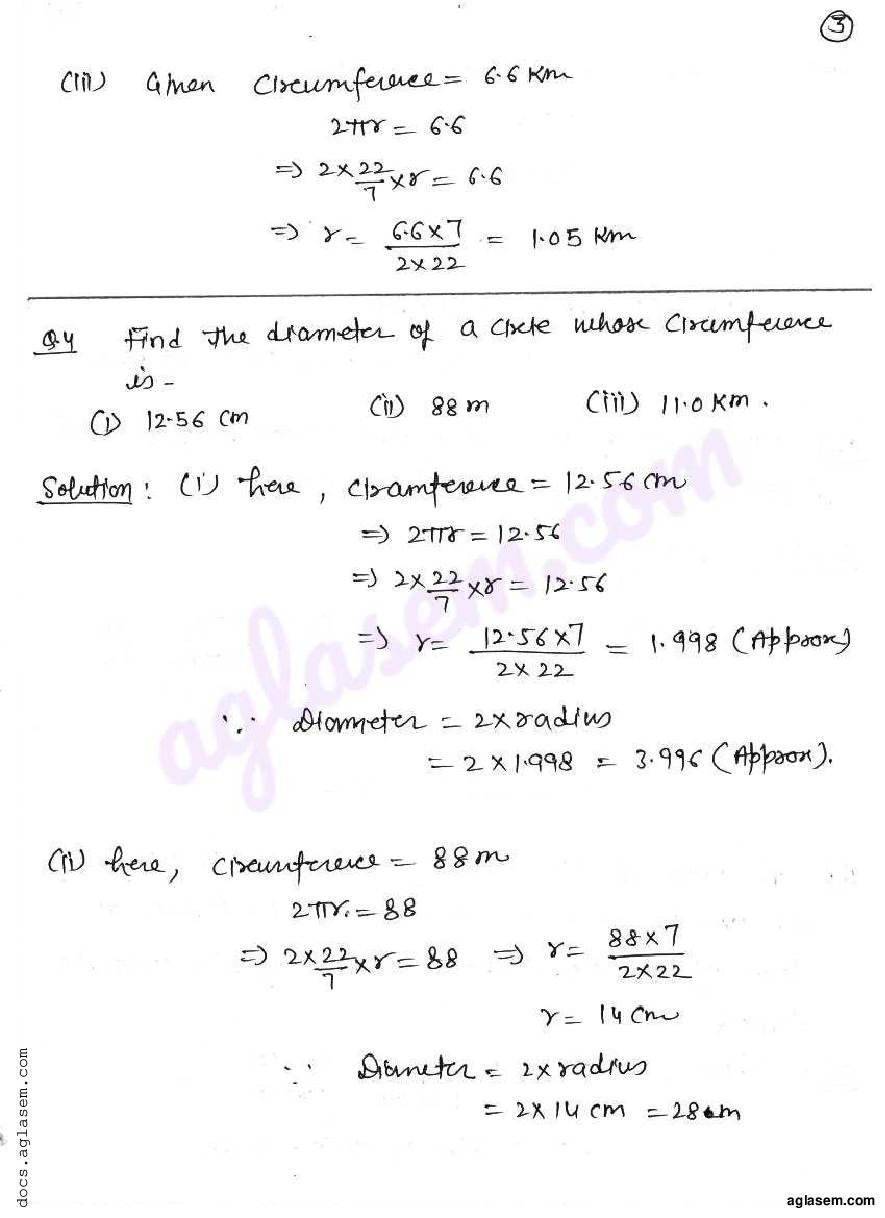 3
(iii) Given Circumference = 6.6 Km
2πr = 6.6
=> 2 × 22/7 × r = 6.6
=> r = 6.6 × 7 / 2 × 22 = 1.05 Km
Q4 Find the diameter of a circle whose circumference
is -
(i) 12.56 cm (ii) 88 m (iii) 11.0 Km.
Solution: (i) here, circumference = 12.56 cm
=> 2πr = 12.56
=> 2 × 22/7 × r = 12.56
=> r = 12.56 × 7 / 2 × 22 = 1.998 (Approx)
∵ Diameter = 2 × radius
= 2 × 1.998 = 3.996 (Approx).
(ii) here, circumference = 88 m
2πr = 88
=> 2 × 22/7 × r = 88 => r = 88 × 7 / 2 × 22
r = 14 cm
∵ Diameter = 2 × radius
= 2 × 14 cm = 28 cm
aglasem.com
docs.aglasem.com
aglasem.com